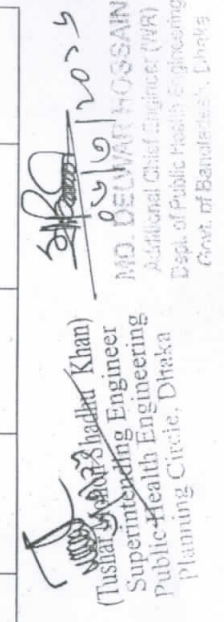 (Tushar Mohon Shadhu Khan)
Superintending Engineer
Public Health Engineering
Planning Circle, Dhaka
MD. DELWAR HOSSAIN
Additional Chief Engineer (WR)
Dept. of Public Health Engineering
Govt. of Bangladesh, Dhaka